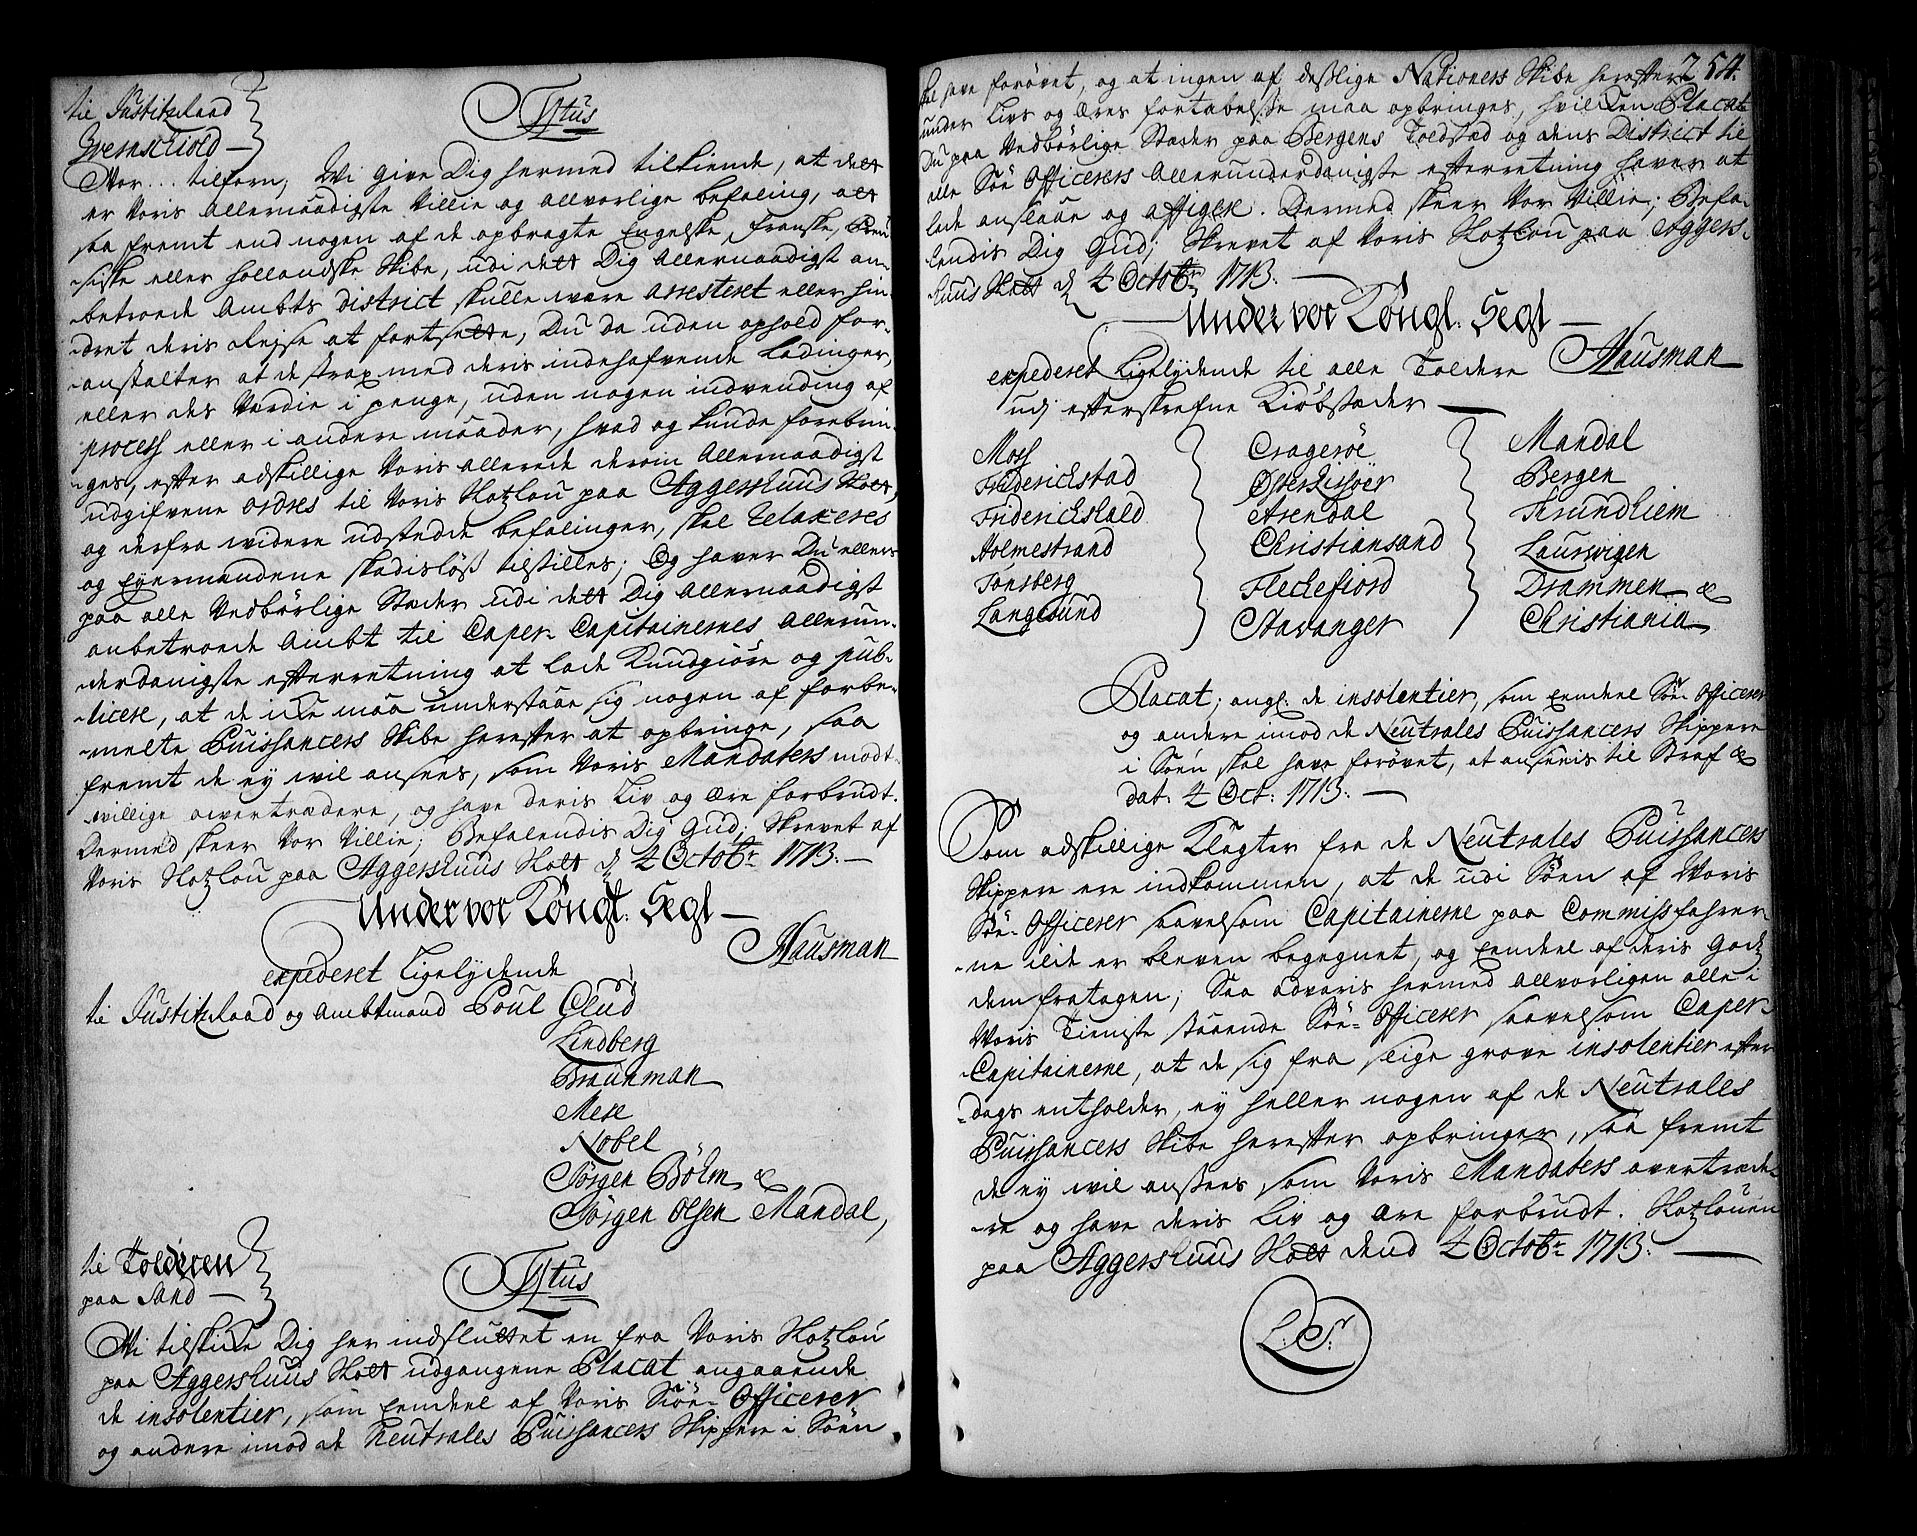 til Justitzraad
Svemschiold —
Titus
Vor . . . tilforn, Wi give Dig hermed tilkiende, at dett
er Voris Allernaadigste Villie og allvorlige befaling, att
saa fremt end nogen af de opbragte Engelske, franske, Preu-
siske eller hollandske Skibe, udi dett Dig Allernaadigst an-
betroede Ambts district skulle være arresteret eller hin-
dret deris Reise at fortsætte, Du da uden ophold for-
anstalter at de strax med deris indehafvende Ladinger,
eller des Værdie i penge, uden nogen indvending af
process eller i andre maader, hvad og kunde forebrin-
ges, efter adskillige Voris allerede derom Allernaadigst
udgifvene ordres til Voris Slotzlou paa Aggershuus Slott,
og derfra widere udstedde befalinger, skal relaxeres
og Eyermændene skadisløß tilstilles; Og haver Du ellers
paa alle Vedbørlige Stæder udi dett Dig Allernaadigst
anbetroede Ambt til Caper Capitainernes Allerun-
derdanigste efterretning at lade Kundgiøre og pub-
licere, at de icke maa understaae sig nogen af forbe-
melte Puissancers Skibe herefter at opbringe, saa
fremt de ey wil ansees, som Voris Mandaters modt-
willige overtrædere, og have deris Liv og ære forbrudt.
Dermed skeer Vor Villie; Befalendis Dig Gud; Skrevet af
Voris Slotzlou paa Aggershuus Slott d. 4 Octobr 1713. —
Under vor Kongl. Segl —
Hausman
expederet Ligelydende
til Justitzraad og Ambtmand Poul Glud
Lindberg
Braunman
Mese
Nobel
Jørgen Böhm &
Jørgen Olsen Mandal,
til Tolderen
paa Sand —
Titus
Wi tilskicke Dig her indsluttet en fra Voris Slotzlou
paa Aggershuus Slott udgangene Placat angaaende
de insolentier, som Eendeel af Voris Siöe-Officerer
og andere imod de Neutrales Puissancers Skippere i Söen
254.
skal have forøvet, og at ingen af deslige Nationers Skibe herefter
under Livs og æres fortabelse maa opbringes, hvilcken Placat
Du paa Vedbørlige Stæder paa Bergens Toldsted og dens District til
alle Söe Officerers Allerunderdanigste efterretning haver at
lade anslaae og affigere. Dermed skeer Vor Villie; Befa-
lendis Dig Gud; Skrevet af Voris Slotzlou paa Aggers-
huus Slott d. 4 Octobr 1713. —
Under vor Kongl. Segl —
Hausman
expederet Ligelydende til alle Toldere
udi efterskrefne Kiöbstæder —
Moss
Friderichstad
Friderichshald
Holmestrand
Tønsberg
Langesund
Cragerøe
Øster Rissøer
Arendal
Christiansand
Fleckefiord
Stavanger
Mandal
Bergen
Trundhiem
Laurwigen
Drammen &
Christiania
Placat, angl. de insolentier, som Eendeel Söe-Officerer
og andere imod de Neutrales Puissancers Skippere
i Söen skal have forøvet, at anseeris til Straf &
dat. 4 Oct: 1713. —
Som adskillige Klagter fra de Neutrales Puissancers
Skippere ere indkommen, at de udi Söen af Woris
Söe-Officerer saavelsom Capitainerne paa Commissfahrer-
ne ilde er bleven begegnet, og Eendeel af deris Godz
dem fratagen; Saa advaris hermed allvorligen alle i
Woris Tieniste staaende Söe-Officerer saavelsom Caper-
Capitainerne, at de sig fra slige grove insolentier efter
dags entholder, ey heller nogen af de Neutrales
Puissancers Skibe herefter opbringer, saa fremt
de ey wil ansees som Voris Mandaters overtræde-
re og have deris Liv og ære forbrudt. Slotzlouen
paa Aggershuus Slott dend 4 Octobr 1713. —
L. S.